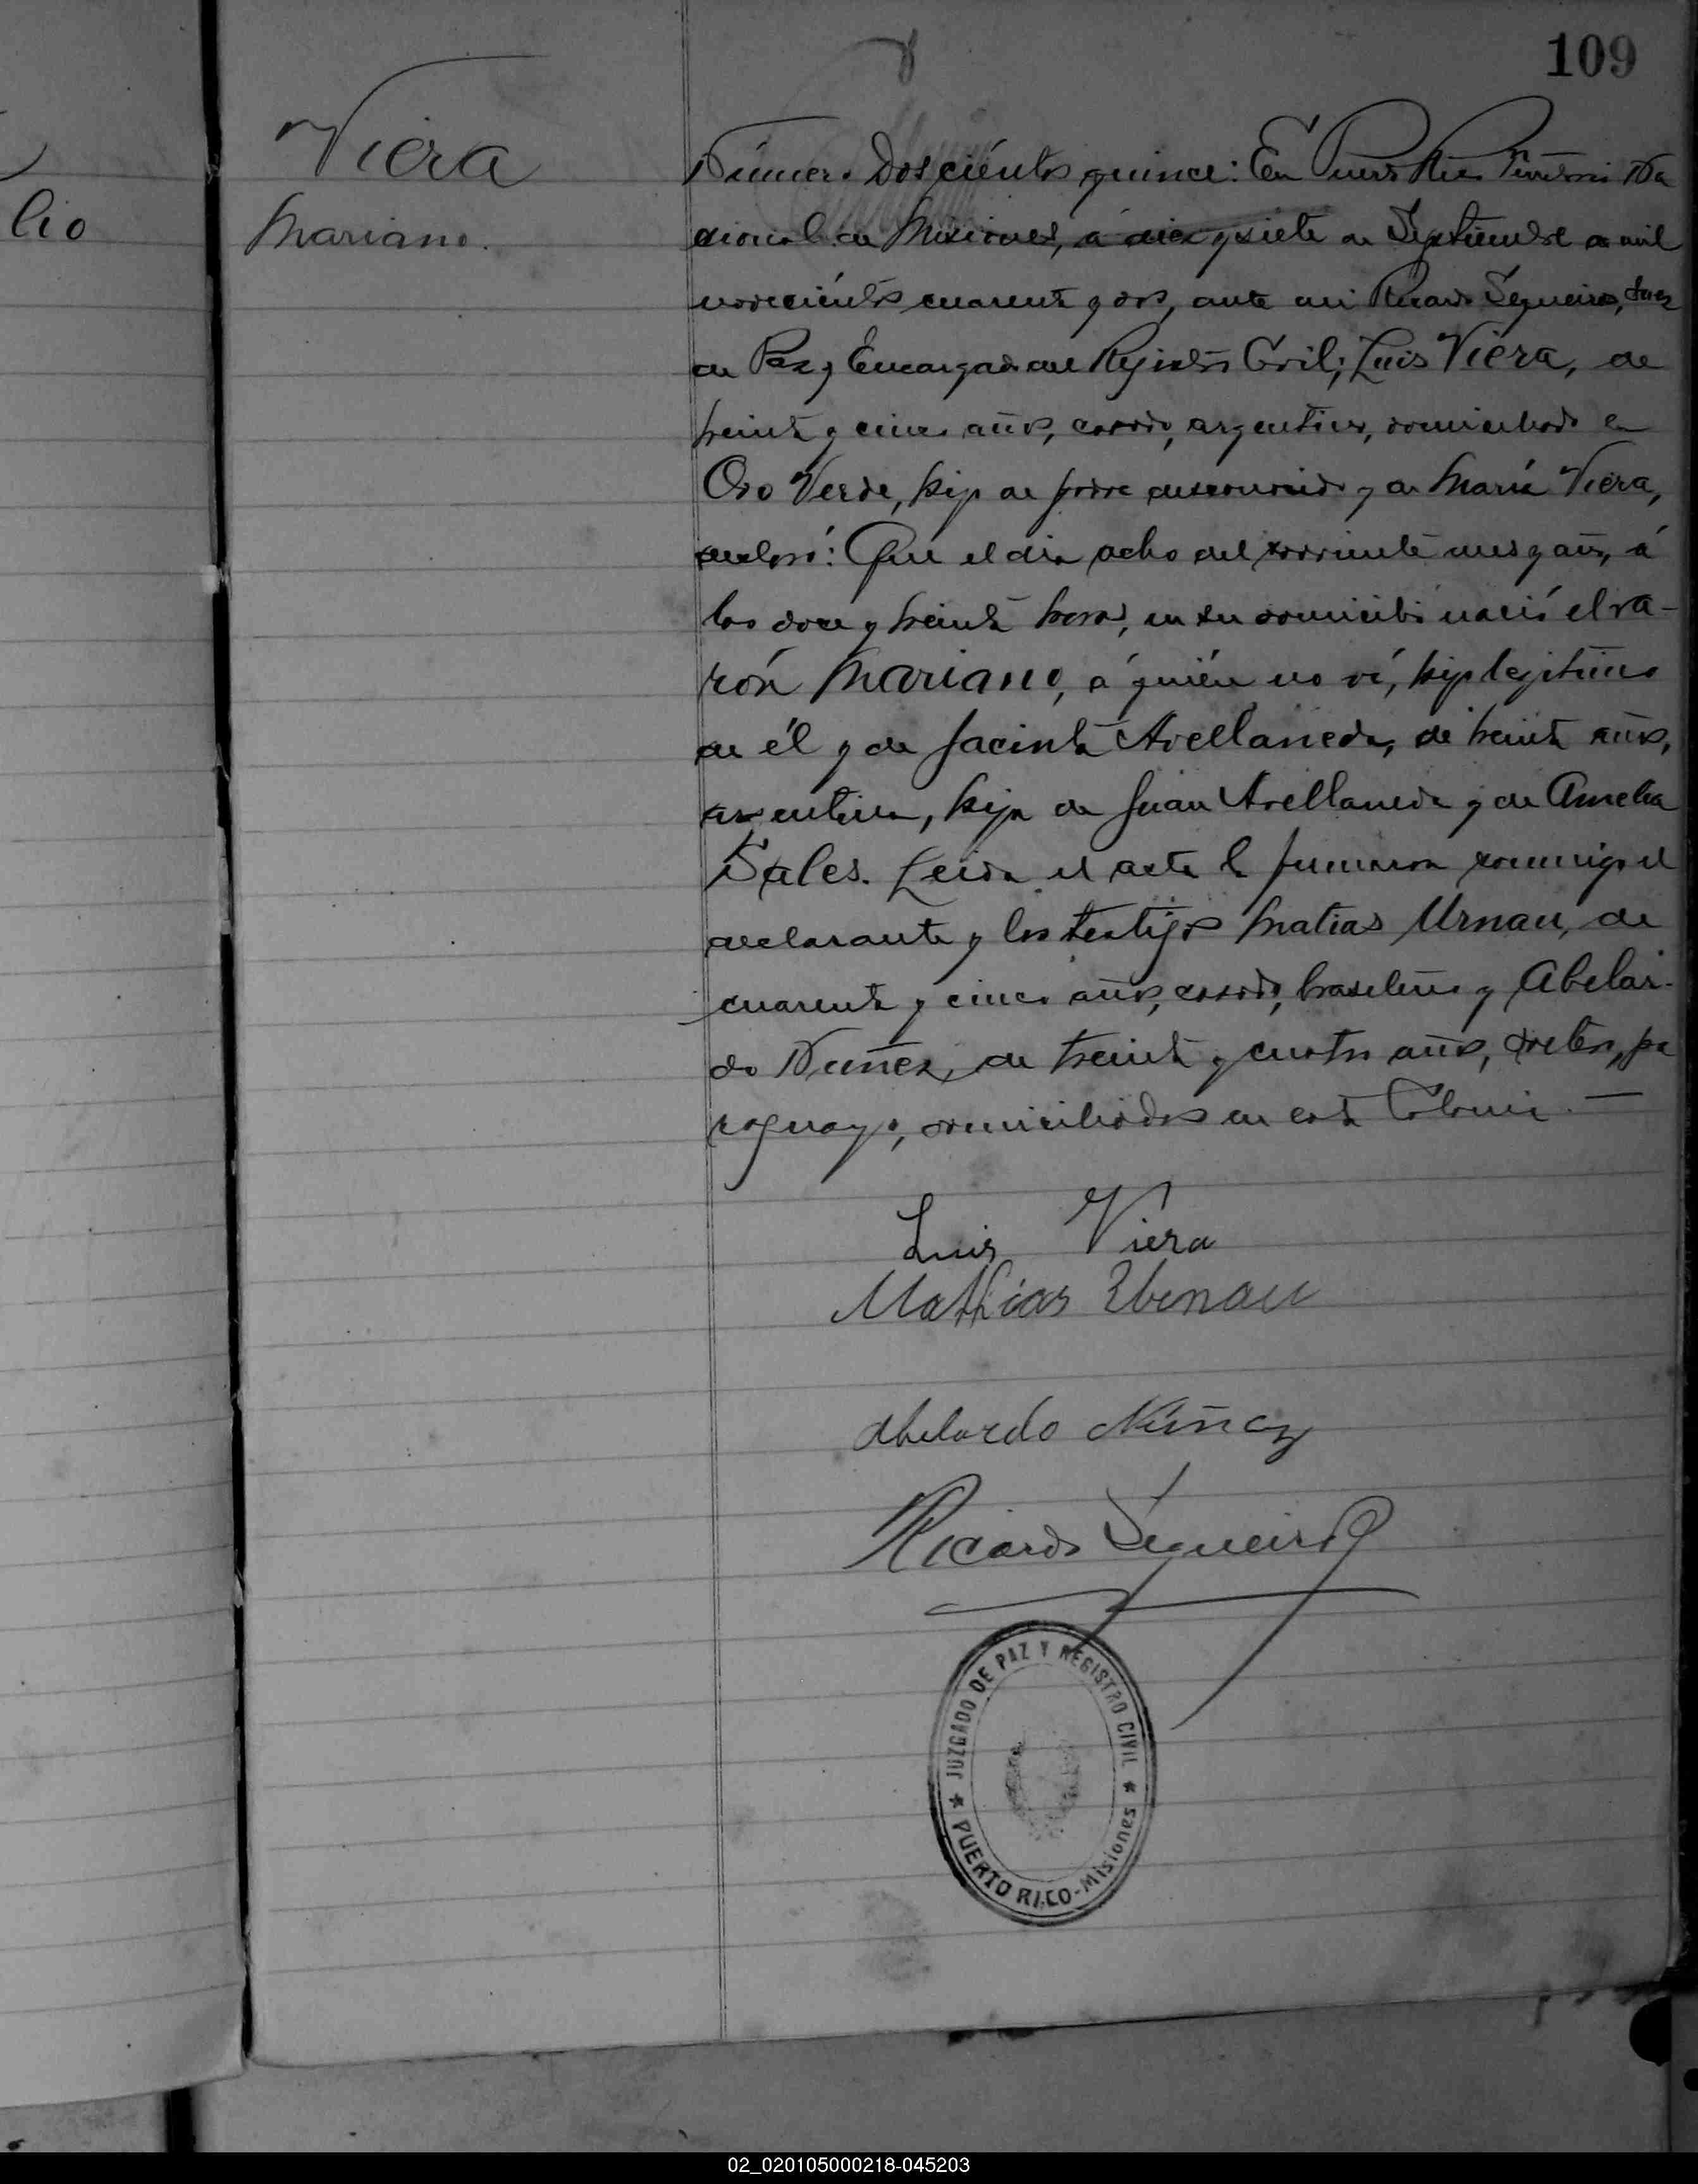 109
lio
Viera
Mariano.
Número Doscientos quince: En Puerto Rico Territorio Na
cional de Misiones, á diez y siete de Septiembre de mil
novecientos cuarenta y dos, ante mi Ricardo Sequeira, Juez
de Paz y Encargado del Rejistro Civil; Luis Viera, de
treinta y cinco años, casado, argentino, domiciliado en
Oro Verde, hijo de padre desconocido y de María Viera,
declaró: Que el día ocho del corriente mes y año, á
las doce y treinta horas, en su domicilio nació el va-
rón Mariano, á quién no ví, hijo lejitimo
de él y de Jacinta Avellaneda, de treinta años,
argentina, hija de Juan Avellaneda y de Amelia
Sales. Leida el acta la firmaron conmigo el
declarante y los testigos Matias Urnau, de
cuarenta y cinco años, casado, brasilero y Abelar-
do Nuñez, de treinta y cuatro años, soltero, pa
raguayo, domiciliados en esta Colonia. —
Luis Viera
Mathias Urnau
Abelardo Núñez
Ricardo Sequeira
JUZGADO DE PAZ Y REGISTRO CIVIL
★ PUERTO RICO - Misiones ★
02_020105000218-045203